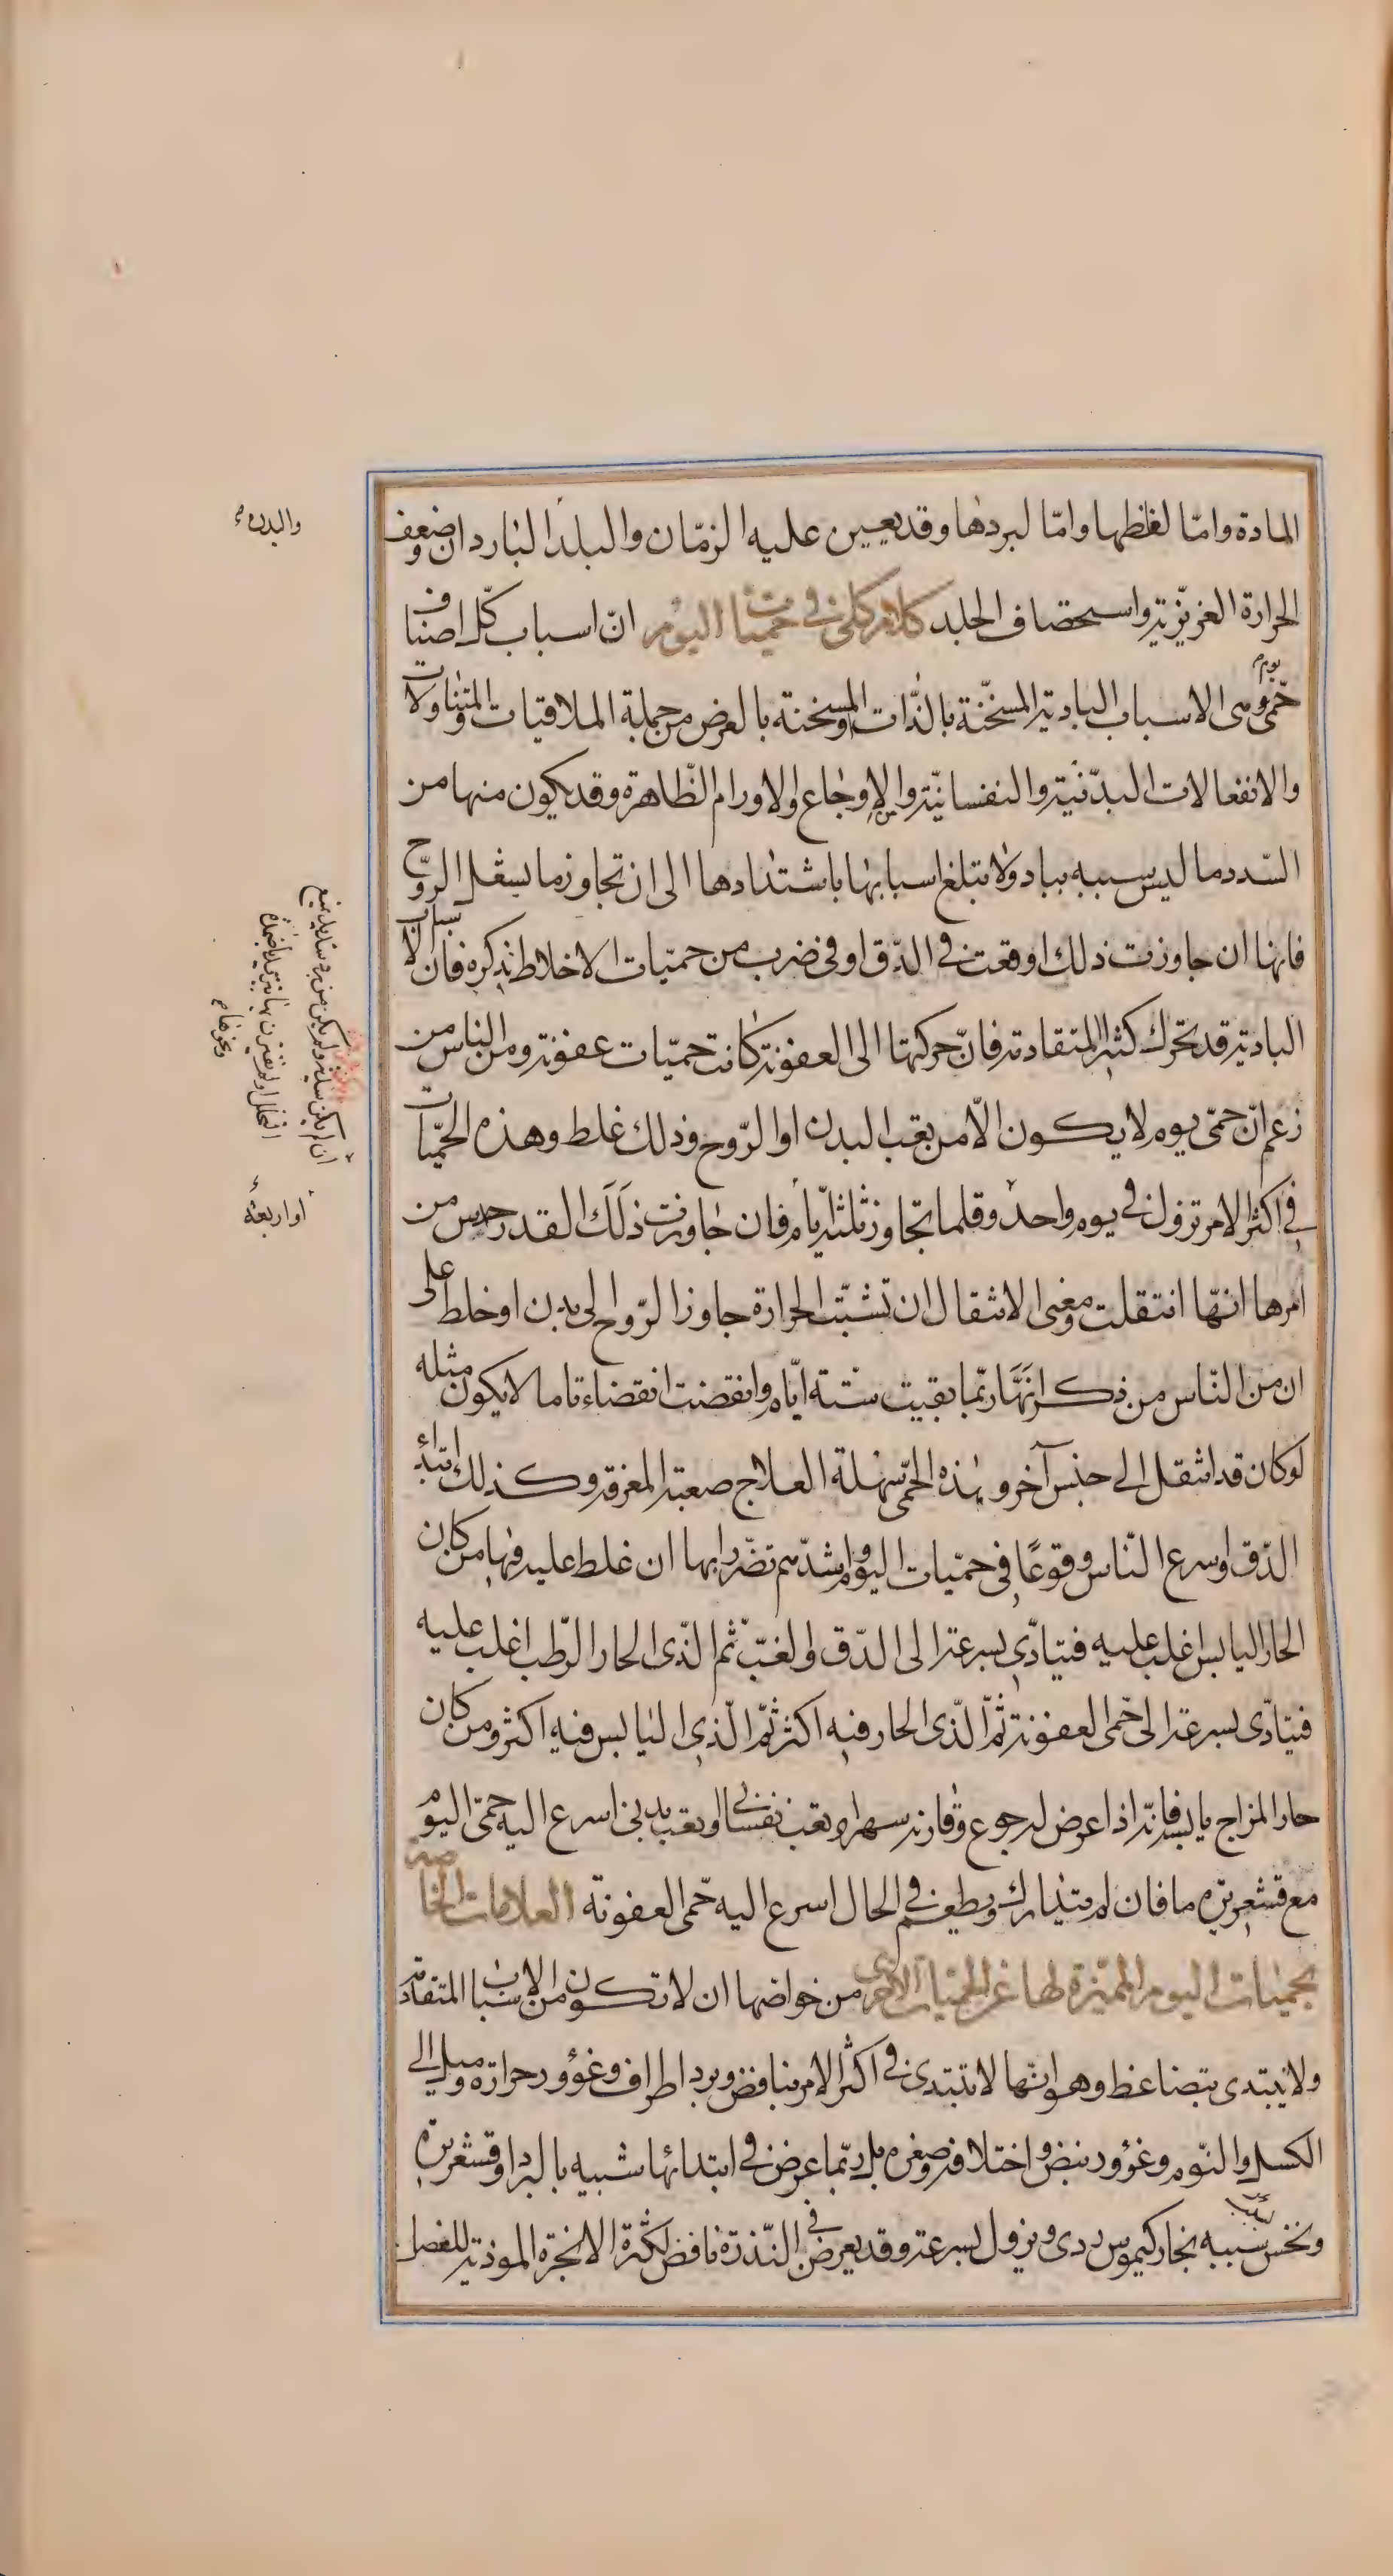 المادة واما لغلظها واما لبردها وقد يعين عليه الزمان والبلد البارد ان وضعف
الحرارة الغريزية واستحصاف الجلد كلام كلى فى حميات اليوم ان اسباب كل اصناف
حمى يوم هى الاسباب البادية المسخنة بالذات او المسخنة بالعرض من جملة الملاقيات والمتناولات
والانفعالات البدنية والنفسانية والاوجاع والاورام الظاهرة وقد يكون منها من
السدد ما ليس سببه بباد ولا تبلغ اسبابها باشتدادها الى ان تجاوز ما يشعل الروح
فانها ان جاوزت ذلك اوقعت فى الدق او فى ضرب من حميات الاخلاط نذكره فان الاسباب
البادية قد تحرك كثيرا المتقادمة فان حركتها الى العفونة كانت حميات عفونة ومن الناس من
زعم ان حمى يوم لا يكون الا من تعب البدن او الروح وذلك غلط وهذه الحميات
فى اكثر الامر تزول فى يوم واحد وقلما تجاوز ثلثة ايام فان جاوزت ذلك القدر حدس من
امرها انها انتقلت ومعنى الانتقال ان تشبت الحرارة جاوز الروح الى بدن او خلط على
ان من الناس من ذكر انها ربما بقيت ستة ايام وانقضت انقضاء تاما لا يكون مثله
لو كان قد انتقل الى جنس آخر وهذه الحمى سهلة العلاج صعبة المعرفة وكذلك ابتداء
الدق او اسرع الناس وقوعا فى حميات اليوم واشدهم تضررا بها ان غلط عليه فيها من كان
الحار اليابس اغلب عليه فيتادى بسرعة الى الدق والغب ثم الذى الحار الرطب اغلب عليه
فيتادى بسرعة الى حمى العفونة ثم الذى الحار فيه اكثر ثم الذى اليابس فيه اكثر ومن كان
حار المزاج يابسه فانه اذا عرض له جوع وقارنه سهر او تعب نفسانى او تعب بدنى اسرع اليه حمى اليوم
مع قشعريرة ما فان لم يتدارك ويطعم فى الحال اسرع اليه حمى العفونة العلامات الخاصة
بحميات اليوم المميزة لها عن الحميات الاخرى من خواصها ان لا تكون من الاسباب المتقادمة
ولا يبتدى بتضاغط وهو انها لا تبتدى فى اكثر الامر بنافض وبرد اطراف وغؤور حرارة وميل الى
الكسل والنوم وغؤور نبض واختلافه وصغره بل ربما عرض فى ابتدائها شبيه بالبرد او قشعريرة
ونخس بسبب سببه بخار كيموس ردى ويزول بسرعة وقد يعرض فى الندرة نافض لكثرة الابخرة الموذية للعضل
والبدن
ان لم يكن سليم ولم يكن من برد شديد يمنع
التحلل او لم يقترن بها
ونحوها
او اربعة